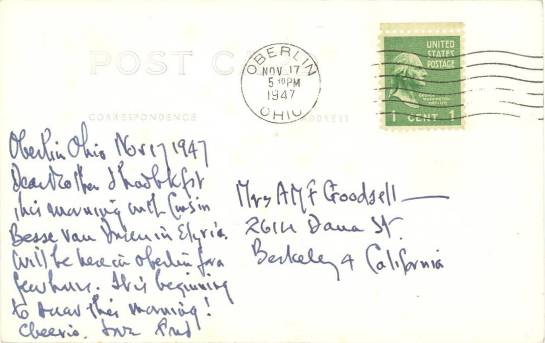 POST CARD
CORRESPONDENCE
ADDRESS
OBERLIN
NOV 17
5 PM
1947
OHIO
UNITED
STATES
POSTAGE
1 CENT 1
Oberlin Ohio Nov 17 1947
Dear Mother I had bkfst
this morning with Cousin
Besse van in Elyria.
Will be here in Oberlin for a
few hours. It is beginning
to this morning!
Cheerio. Love Fred
Mrs AMF Goodsell
2614 Dana St.
Berkeley 4 California